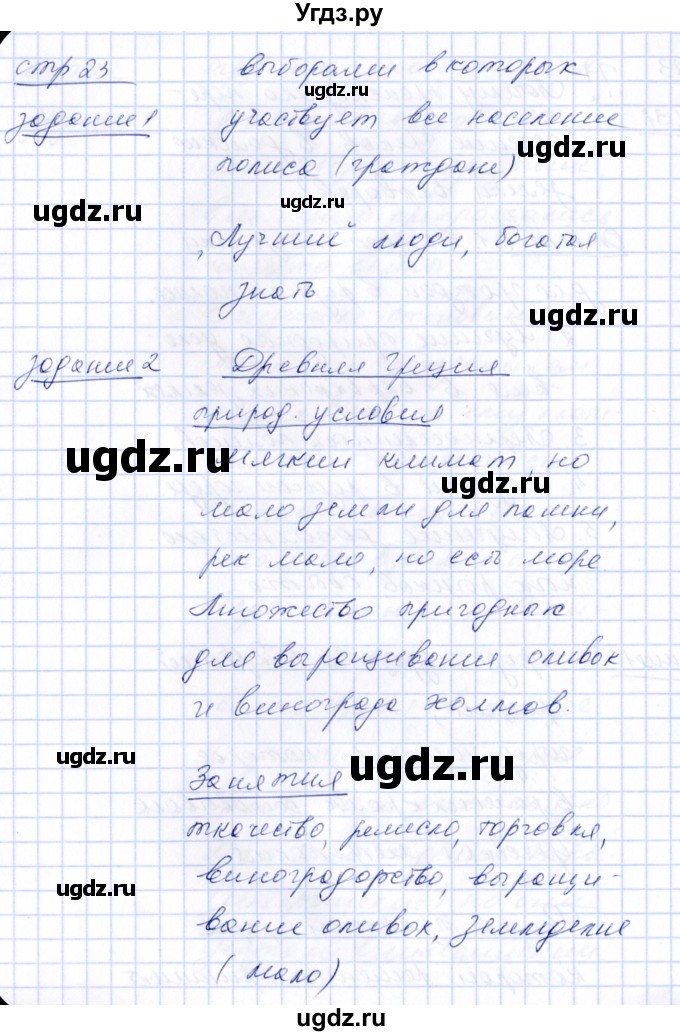 Угдз.ру
стр 23 выборами в которых
ugdz.ru
задание 1 участвует все население
ugdz.ru
полиса (граждане)
ugdz.ru ugdz.ru
"Лучший" люди, богатая
знать
ugdz.ru
задание 2 Древняя Греция
природ. условия
ugdz.ru
мягкий климат, но
ugdz.ru
мало земли для пашни,
рек мало, но есть море.
Множество пригодных
для выращивания оливок
ugdz.ru
и винограда холмов.
ugdz.ru
Занятия ugdz.ru
ткачество, ремисло, торговля,
виноградорство, выращи-
ugdz.ru
вание оливок, земледелие
ugdz.ru
(мало)
ugdz.ru